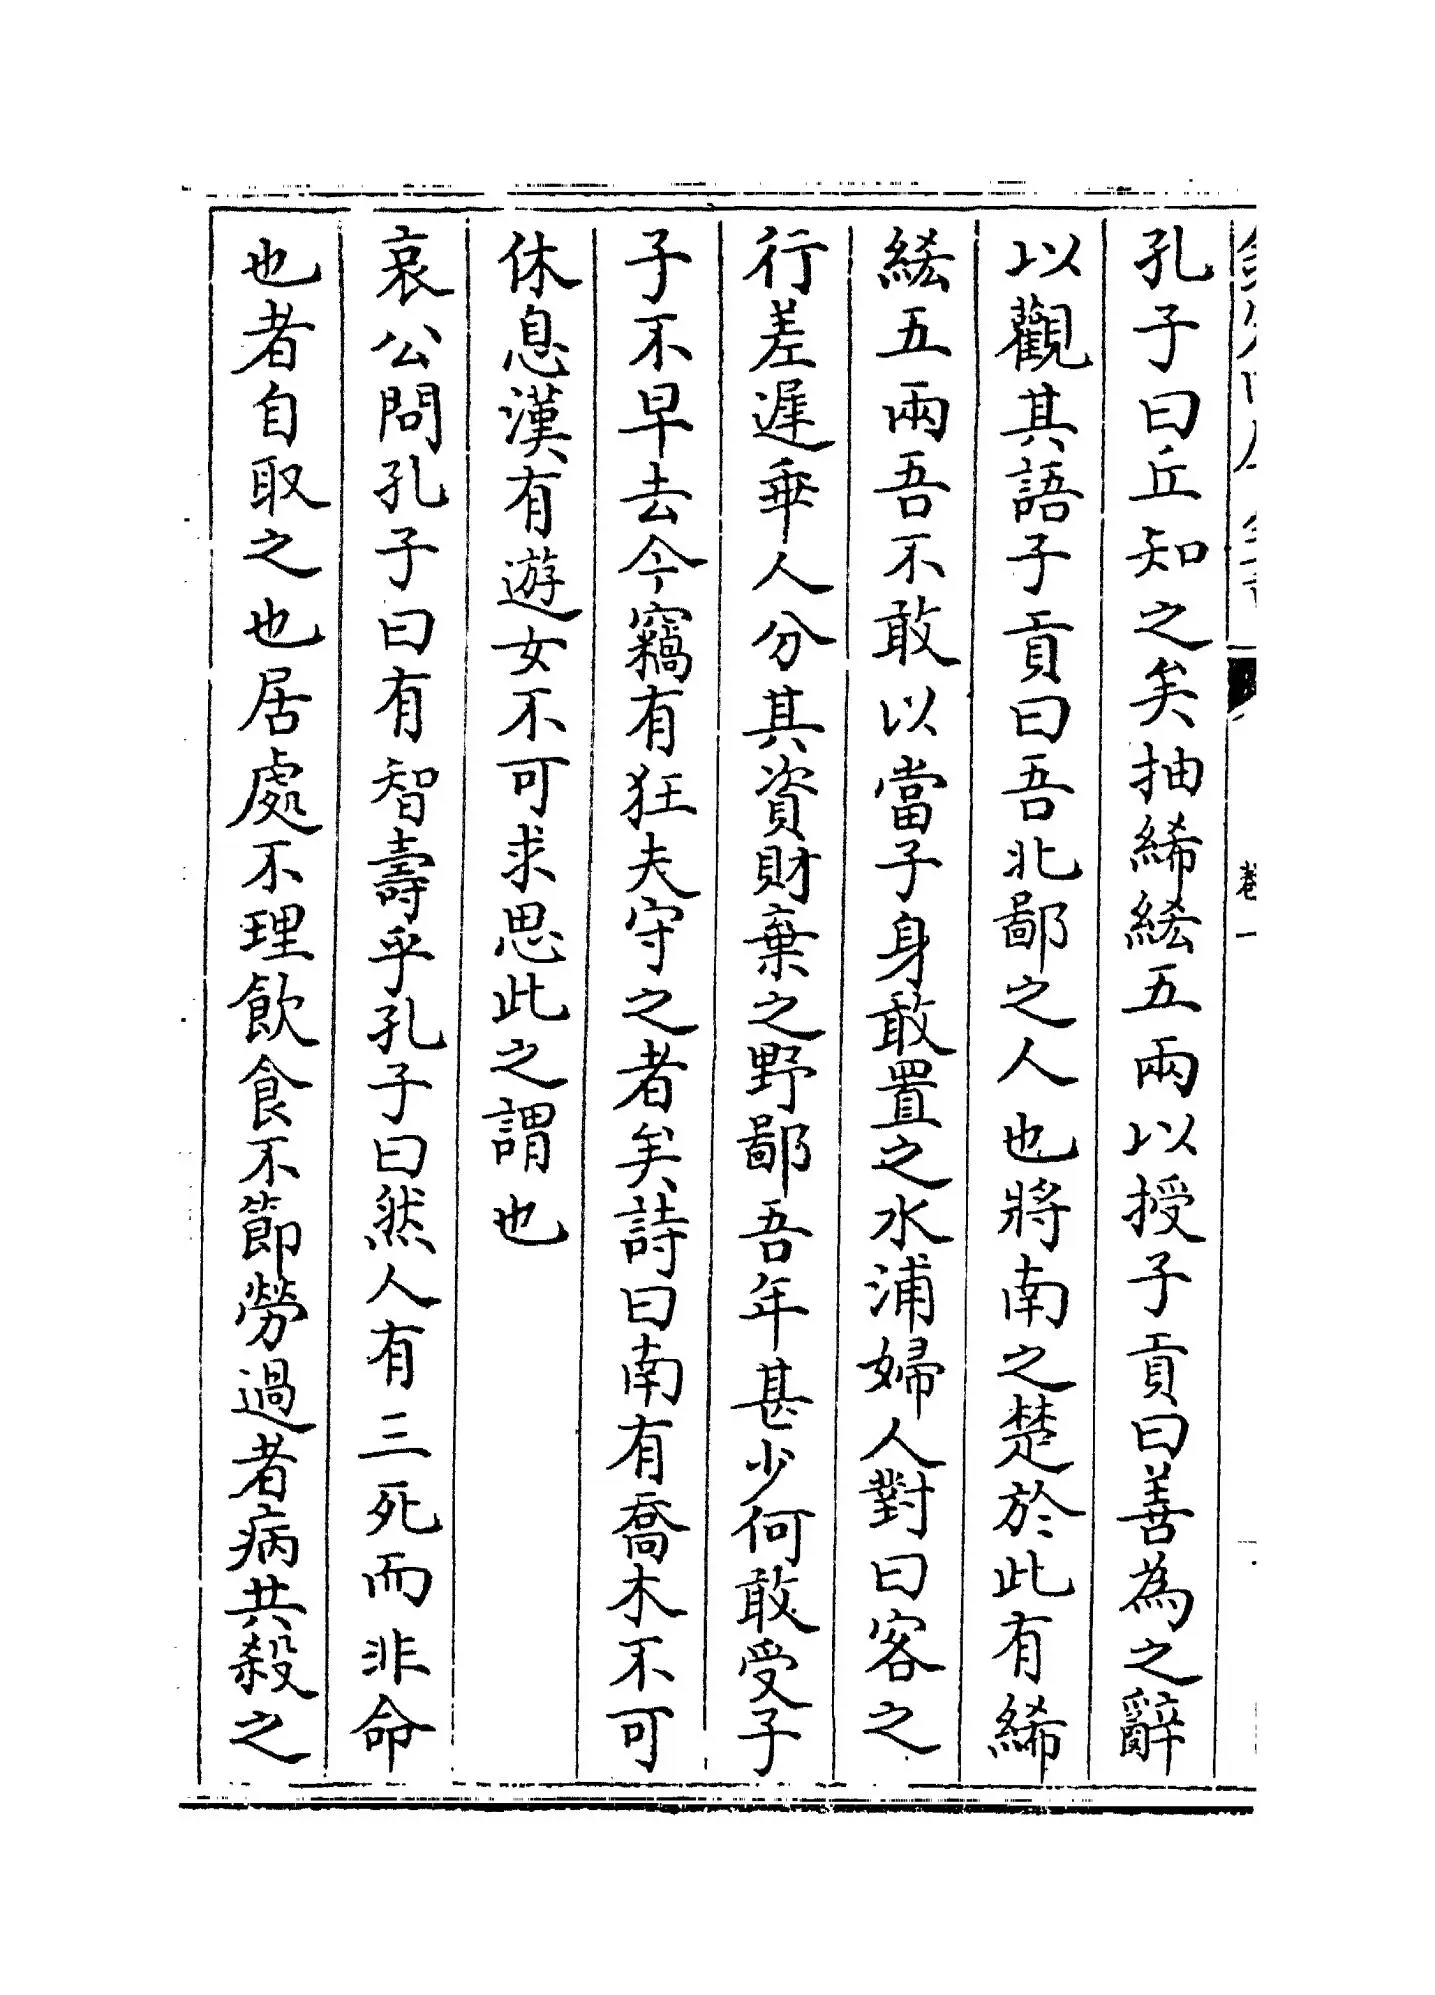 孔子曰丘知之矣抽絺綌五兩以授子貢曰善為之辭
以觀其語子貢曰吾北鄙之人也將南之楚於此有絺
綌五兩吾不敢以當子身敢置之水浦婦人對曰客之
行差遲乗人分其資財棄之野鄙吾年甚少何敢受子
子不早去今竊有狂夫守之者矣詩曰南有喬木不可
休息漢有遊女不可求思此之謂也
哀公問孔子曰有智壽乎孔子曰然人有三死而非命
也者自取之也居處不理飲食不節勞過者病共殺之
卷一